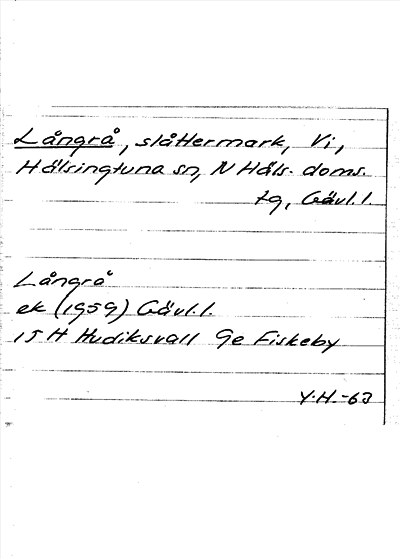 Långrå, slåttermark, Vi,
Hälsingtuna sn, N Häls. doms.
tg, Gävl.l.
Långrå
ek (1959) Gävl.l.
15 H Hudiksvall 9e Fiskeby
Y.H.-63